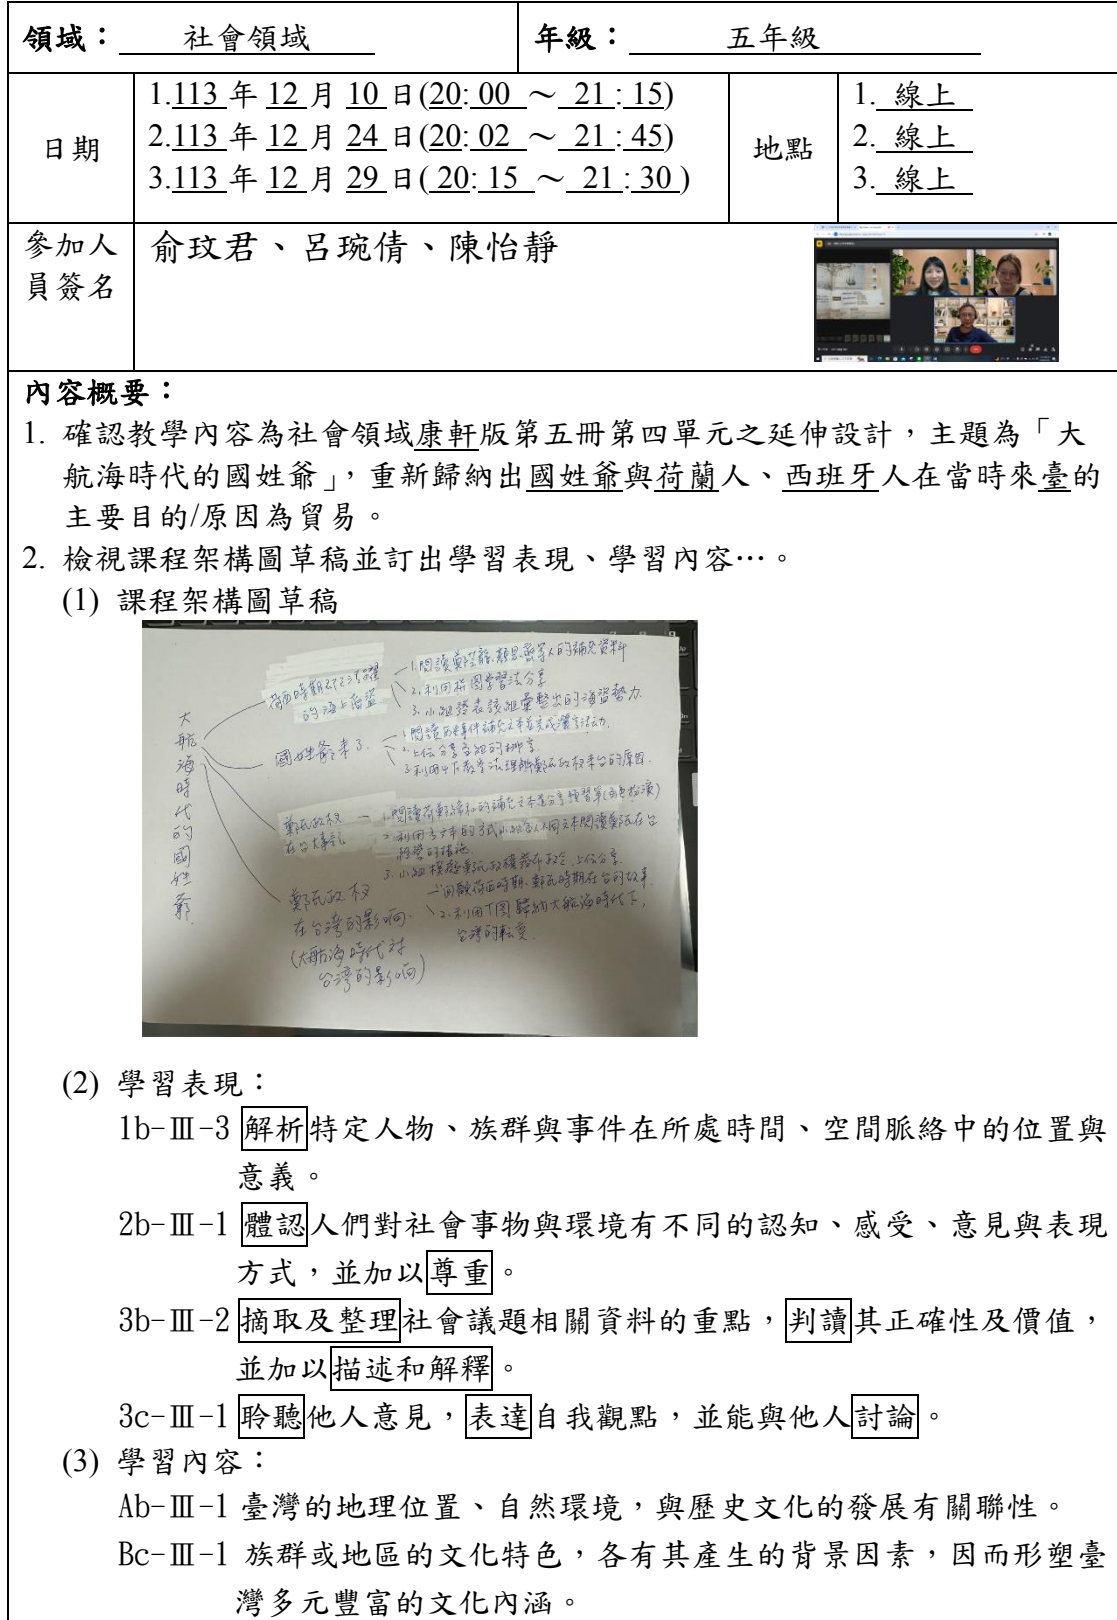 領域： 社會領域 年級： 五年級
日期
1.113 年 12 月 10 日(20: 00 ～ 21 : 15)
2.113 年 12 月 24 日(20: 02 ～ 21 : 45)
3.113 年 12 月 29 日( 20: 15 ～ 21 : 30 )
地點
1. 線上
2. 線上
3. 線上
參加人
員簽名
俞玟君、呂琬倩、陳怡靜
內容概要：
1. 確認教學內容為社會領域康軒版第五冊第四單元之延伸設計，主題為「大
航海時代的國姓爺」，重新歸納出國姓爺與荷蘭人、西班牙人在當時來臺的
主要目的/原因為貿易。
2. 檢視課程架構圖草稿並訂出學習表現、學習內容…。
(1) 課程架構圖草稿
大航海時代的國姓爺
的海上海盜
1.閱讀鄭芝龍、顏思齊等人的補充資料
2.利用拼圖學習法分享
3.小組發表該組彙整出的海盜勢力
國姓爺來了
2.上台分享各組的排序
鄭氏政权
在台大事記
3.小組模擬鄭氏政權
上台分享
鄭氏政权
在台湾的影响
(大航海時代对
台湾的影响)
1.回顧荷西時期、鄭氏時期在台的故事
2.利用T圖歸納大航海時代下，
台湾的転变
(2) 學習表現：
1b-Ⅲ-3 解析特定人物、族群與事件在所處時間、空間脈絡中的位置與
意義。
2b-Ⅲ-1 體認人們對社會事物與環境有不同的認知、感受、意見與表現
方式，並加以尊重。
3b-Ⅲ-2 摘取及整理社會議題相關資料的重點，判讀其正確性及價值，
並加以描述和解釋。
3c-Ⅲ-1 聆聽他人意見，表達自我觀點，並能與他人討論。
(3) 學習內容：
Ab-Ⅲ-1 臺灣的地理位置、自然環境，與歷史文化的發展有關聯性。
Bc-Ⅲ-1 族群或地區的文化特色，各有其產生的背景因素，因而形塑臺
灣多元豐富的文化內涵。